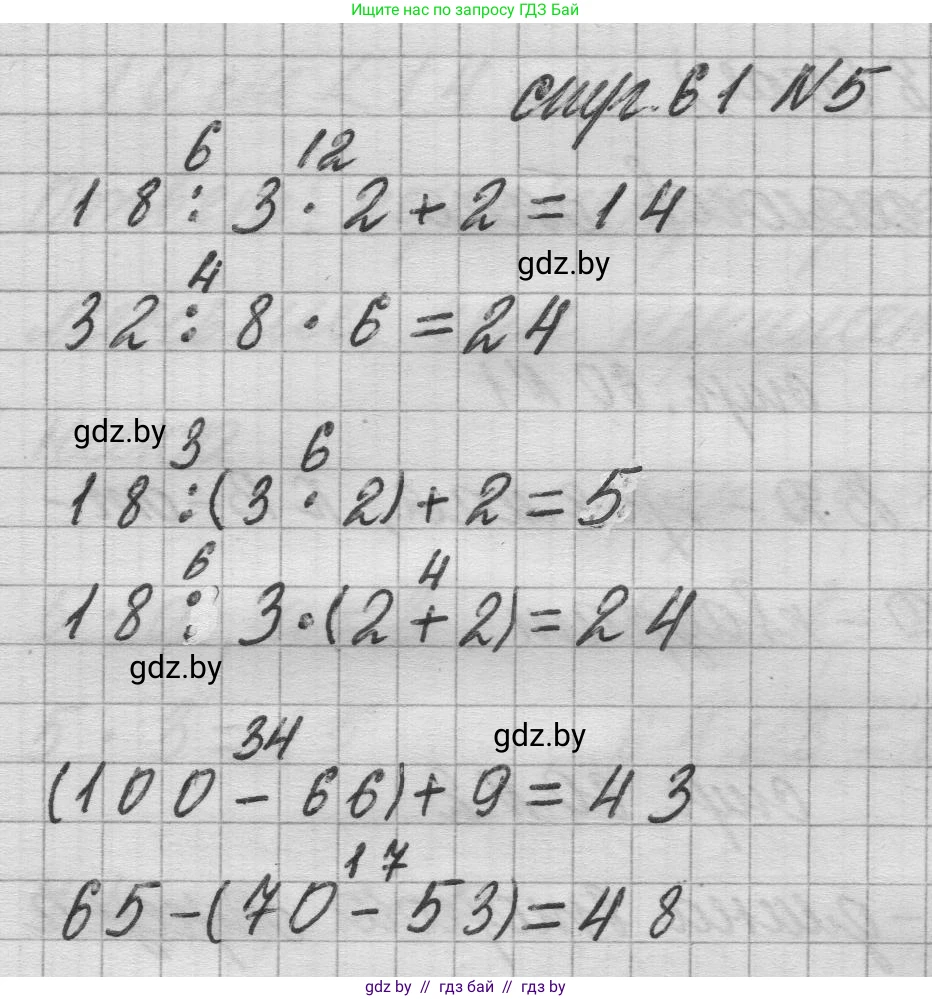 Ищите нас по запросу ГДЗ Бай
стр. 61 №5
6 12
18 : 3 · 2 + 2 = 14
gdz.by
4
32 : 8 · 6 = 24
gdz.by
3 6
18 : (3 · 2) + 2 = 5
6 4
18 : 3 · (2 + 2) = 24
gdz.by
gdz.by
34
(100 - 66) + 9 = 43
17
65 - (70 - 53) = 48
gdz by // гдз бай // gdz by